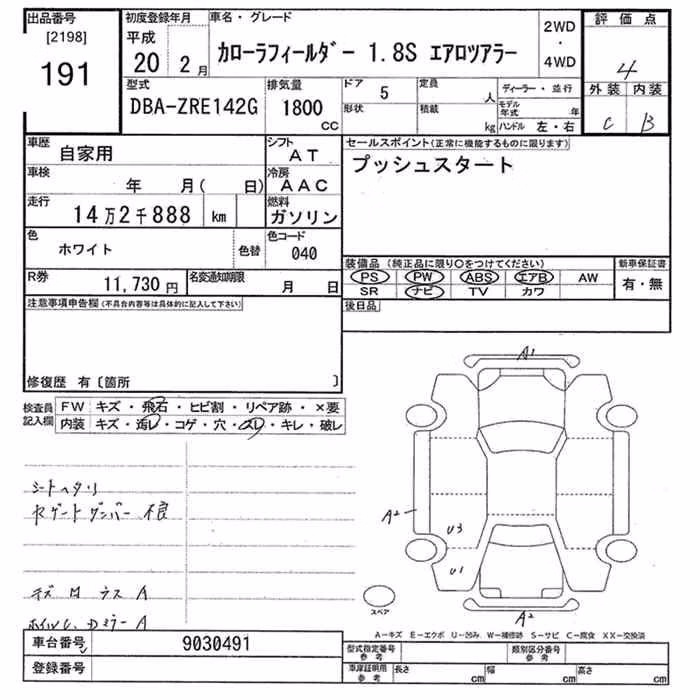 出品番号 初度登録年月 車名・グレード 2WD 評価点
[2198] 平成 ・
191 20 2月 カローラフィールダー 1.8S エアロツアラー 4WD 4
型式 排気量 ドア 5 定員 人 ディーラー・並行 外装 内装
DBA-ZRE142G 1800 cc 形状 積載 kg モデル年式 年 C B
ハンドル 左・右
車歴 自家用 シフト AT セールスポイント(正常に機能するものに限ります)
車検 年 月( 日) 冷房 AAC プッシュスタート
走行 14万2千888 km 燃料 ガソリン
色 ホワイト 色替 色コード 040
装備品 (純正品に限り○をつけてください) 新車保証書
R券 11,730円 名変通知期限 月 日 PS PW ABS エアB AW 有・無
SR ナビ TV カワ
注意事項申告欄(不具合内容等は具体的に記入して下さい) 後日品
修復歴 有〔箇所 〕
A1
検査員記入欄 FW キズ・飛石・ヒビ割・リペア跡・×要
内装 キズ・汚レ・コゲ・穴・スレ・キレ・破レ
シートヘタリ
A2 U3
U1
スペア A2
ホイルC、Dミラー A
A-キズ E-エクボ U-凹み、W-補修跡 S-サビ C-腐食 XX-交換済
車台番号 9030491 型式指定番号 参考 類別区分番号 参考
登録番号 車庫証明用 参考 長さ cm 幅 cm 高さ cm